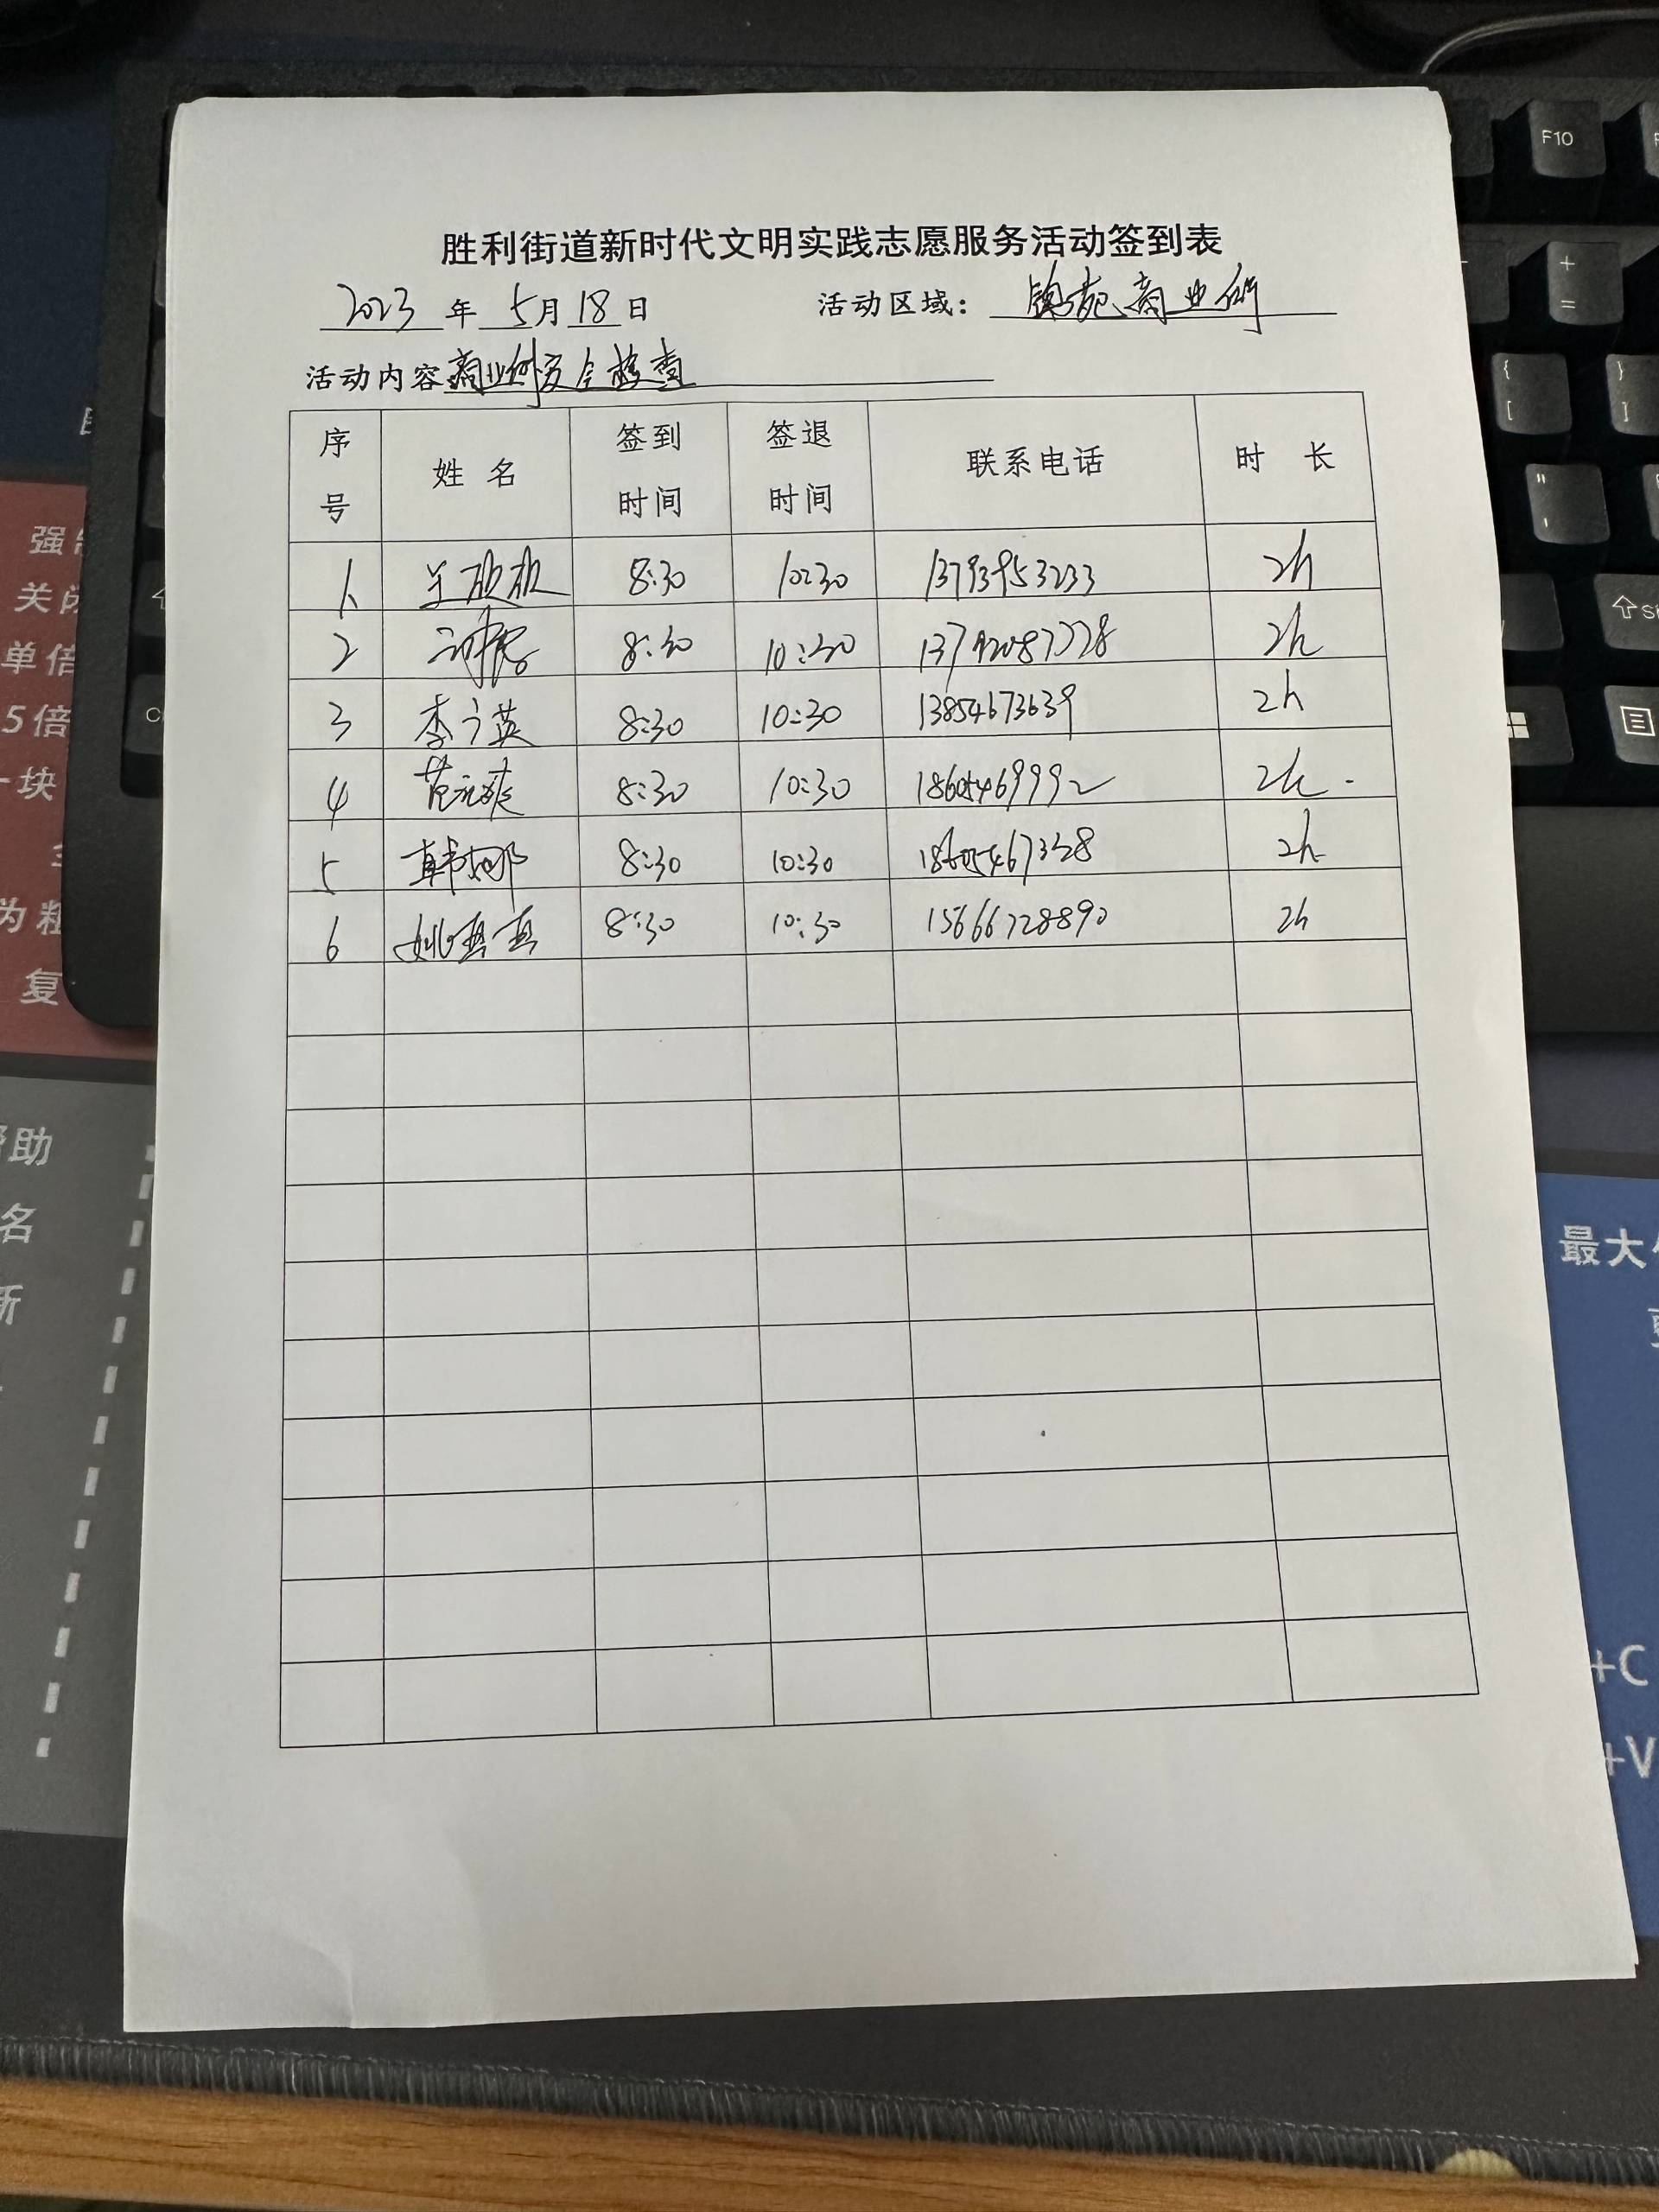 胜利街道新时代文明实践志愿服务活动签到表
2023 年 5月 18 日 活动区域： 锦苑商业街
活动内容 商业街安全检查
序号 姓名 签到时间 签退时间 联系电话 时长
1 8:30 10:30 13793953233 2h
2 8:30 10:30 13792087728 2h
3 李立英 8:30 10:30 13854673639 2h
4 范元爽 8:30 10:30 18605469992 2h
5 韩娜 8:30 10:30 18605467328 2h
6 姚真真 8:30 10:30 15666728890 2h
F10
+
=
{
[
}
]
"
'
强
关闭
单倍
5倍
一块
为粗
复
帮助
名
新
最大
+C
+V